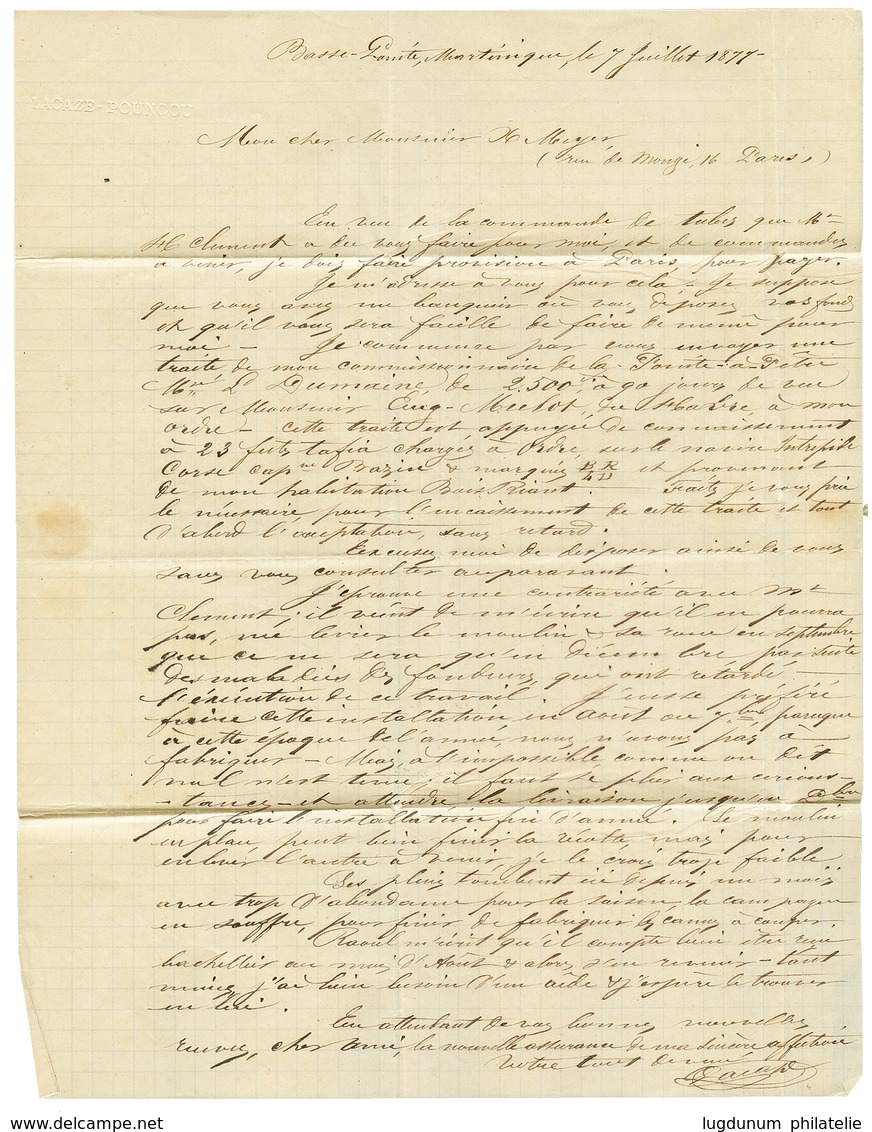 Basse-Pointe, Martinique, le 7 Juillet 1877-
LACAZE-POUNCOU
Mon cher Monsieur H Meyer
(rue de Monge, 16 Paris,)
En vue de la commande de tubes que Mr
H Clement a dû vous faire pour moi, et de commandes
à venir, je dois faire provision à Paris, pour payer.
Je m'adresse à vous pour cela - Je suppose
que vous avez un banquier où vous déposez vos fonds
et qu'il vous sera facille de faire de même pour
moi - Je commence par vous envoyer une
traite de mon commissionnaire de la Pointe-à-Pître
Mr Ld Dumaine, de 2.500 à 90 jours de vue
sur Monsieur Eug- Mulot, du Hâvre, à mon
ordre - cette traite est appuyée de connaissement
à 23 futs tafia chargés à Ordre, sur le navire Intrépide
Corse capne Bazin & marqués BR/LD et provenant
de mon habitation Bois Riant. Faites je vous prie
le nécessaire pour l'encaissement de cette traite et tout
d'abord l'acceptation, sans retard.
Excusez moi de disposer ainsi de vous
sans vous consulter auparavant.
J'éprouve une contrariété avec Mr
Clement, il vient de m'écrire qu'il ne pourra
pas, me livrer le moulin & sa roue en septembre
que ce ne sera qu'en décembre par suite
des maladies des fondeurs qui ont retardé
l'exécution de ce travail J'eusse préféré
faire cette installation en août ou 7bre, parceque
à cette époque de l'année, nous n'avons pas à
fabriquer - Mais, à l'impossible comme on dit
nul n'est tenu; il faut se plier aux circons-
-tances - et attendre la livraison jusqu'en Xbre
pour faire l'installation fin d'année. Le moulin
en place peut bien finir la récolte mais pour
enlever l'autre à venir, je le crois trop faible
Les pluies tombent ici depuis un mois
avec trop d'abondance pour la saison, la campagne
en souffre, pour finir de fabriquer les cannes à couper.
Raoul m'écrit qu'il compte bien être reçu
bachellier au mois d'Août & alors s'en revenir - tant
mieux, j'ai bien besoin d'un aide & j'espère le trouver
en lui.
En attendant de vos bonnes nouvelles
recevez, cher ami, la nouvelle assurance de ma sincère affection
Votre tout dévoué
Lacaze
delcampe.net
lugdunum philatelie